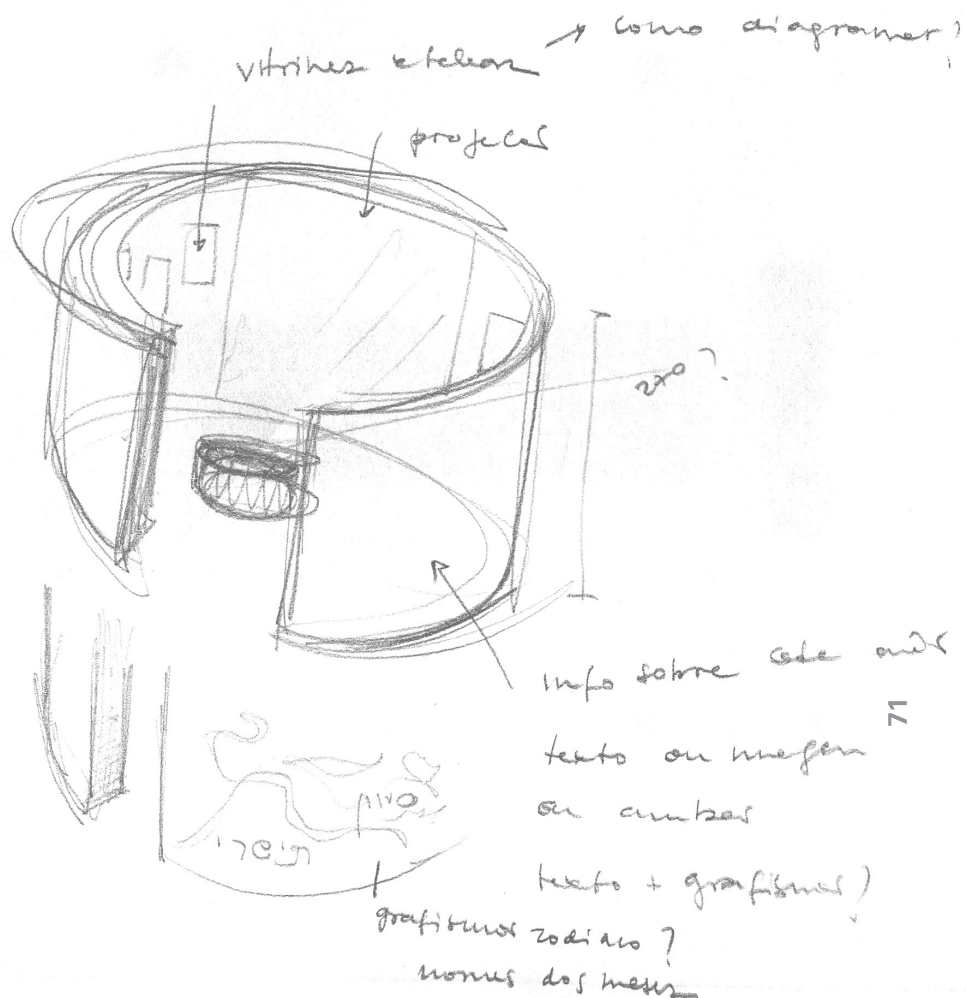 como diagramar?
vitrines e telas
projeção
info sobre cada
71
texto ou imagem
ou ambas
texto + grafismos?
grafismos zodiaco?
nomes dos meses